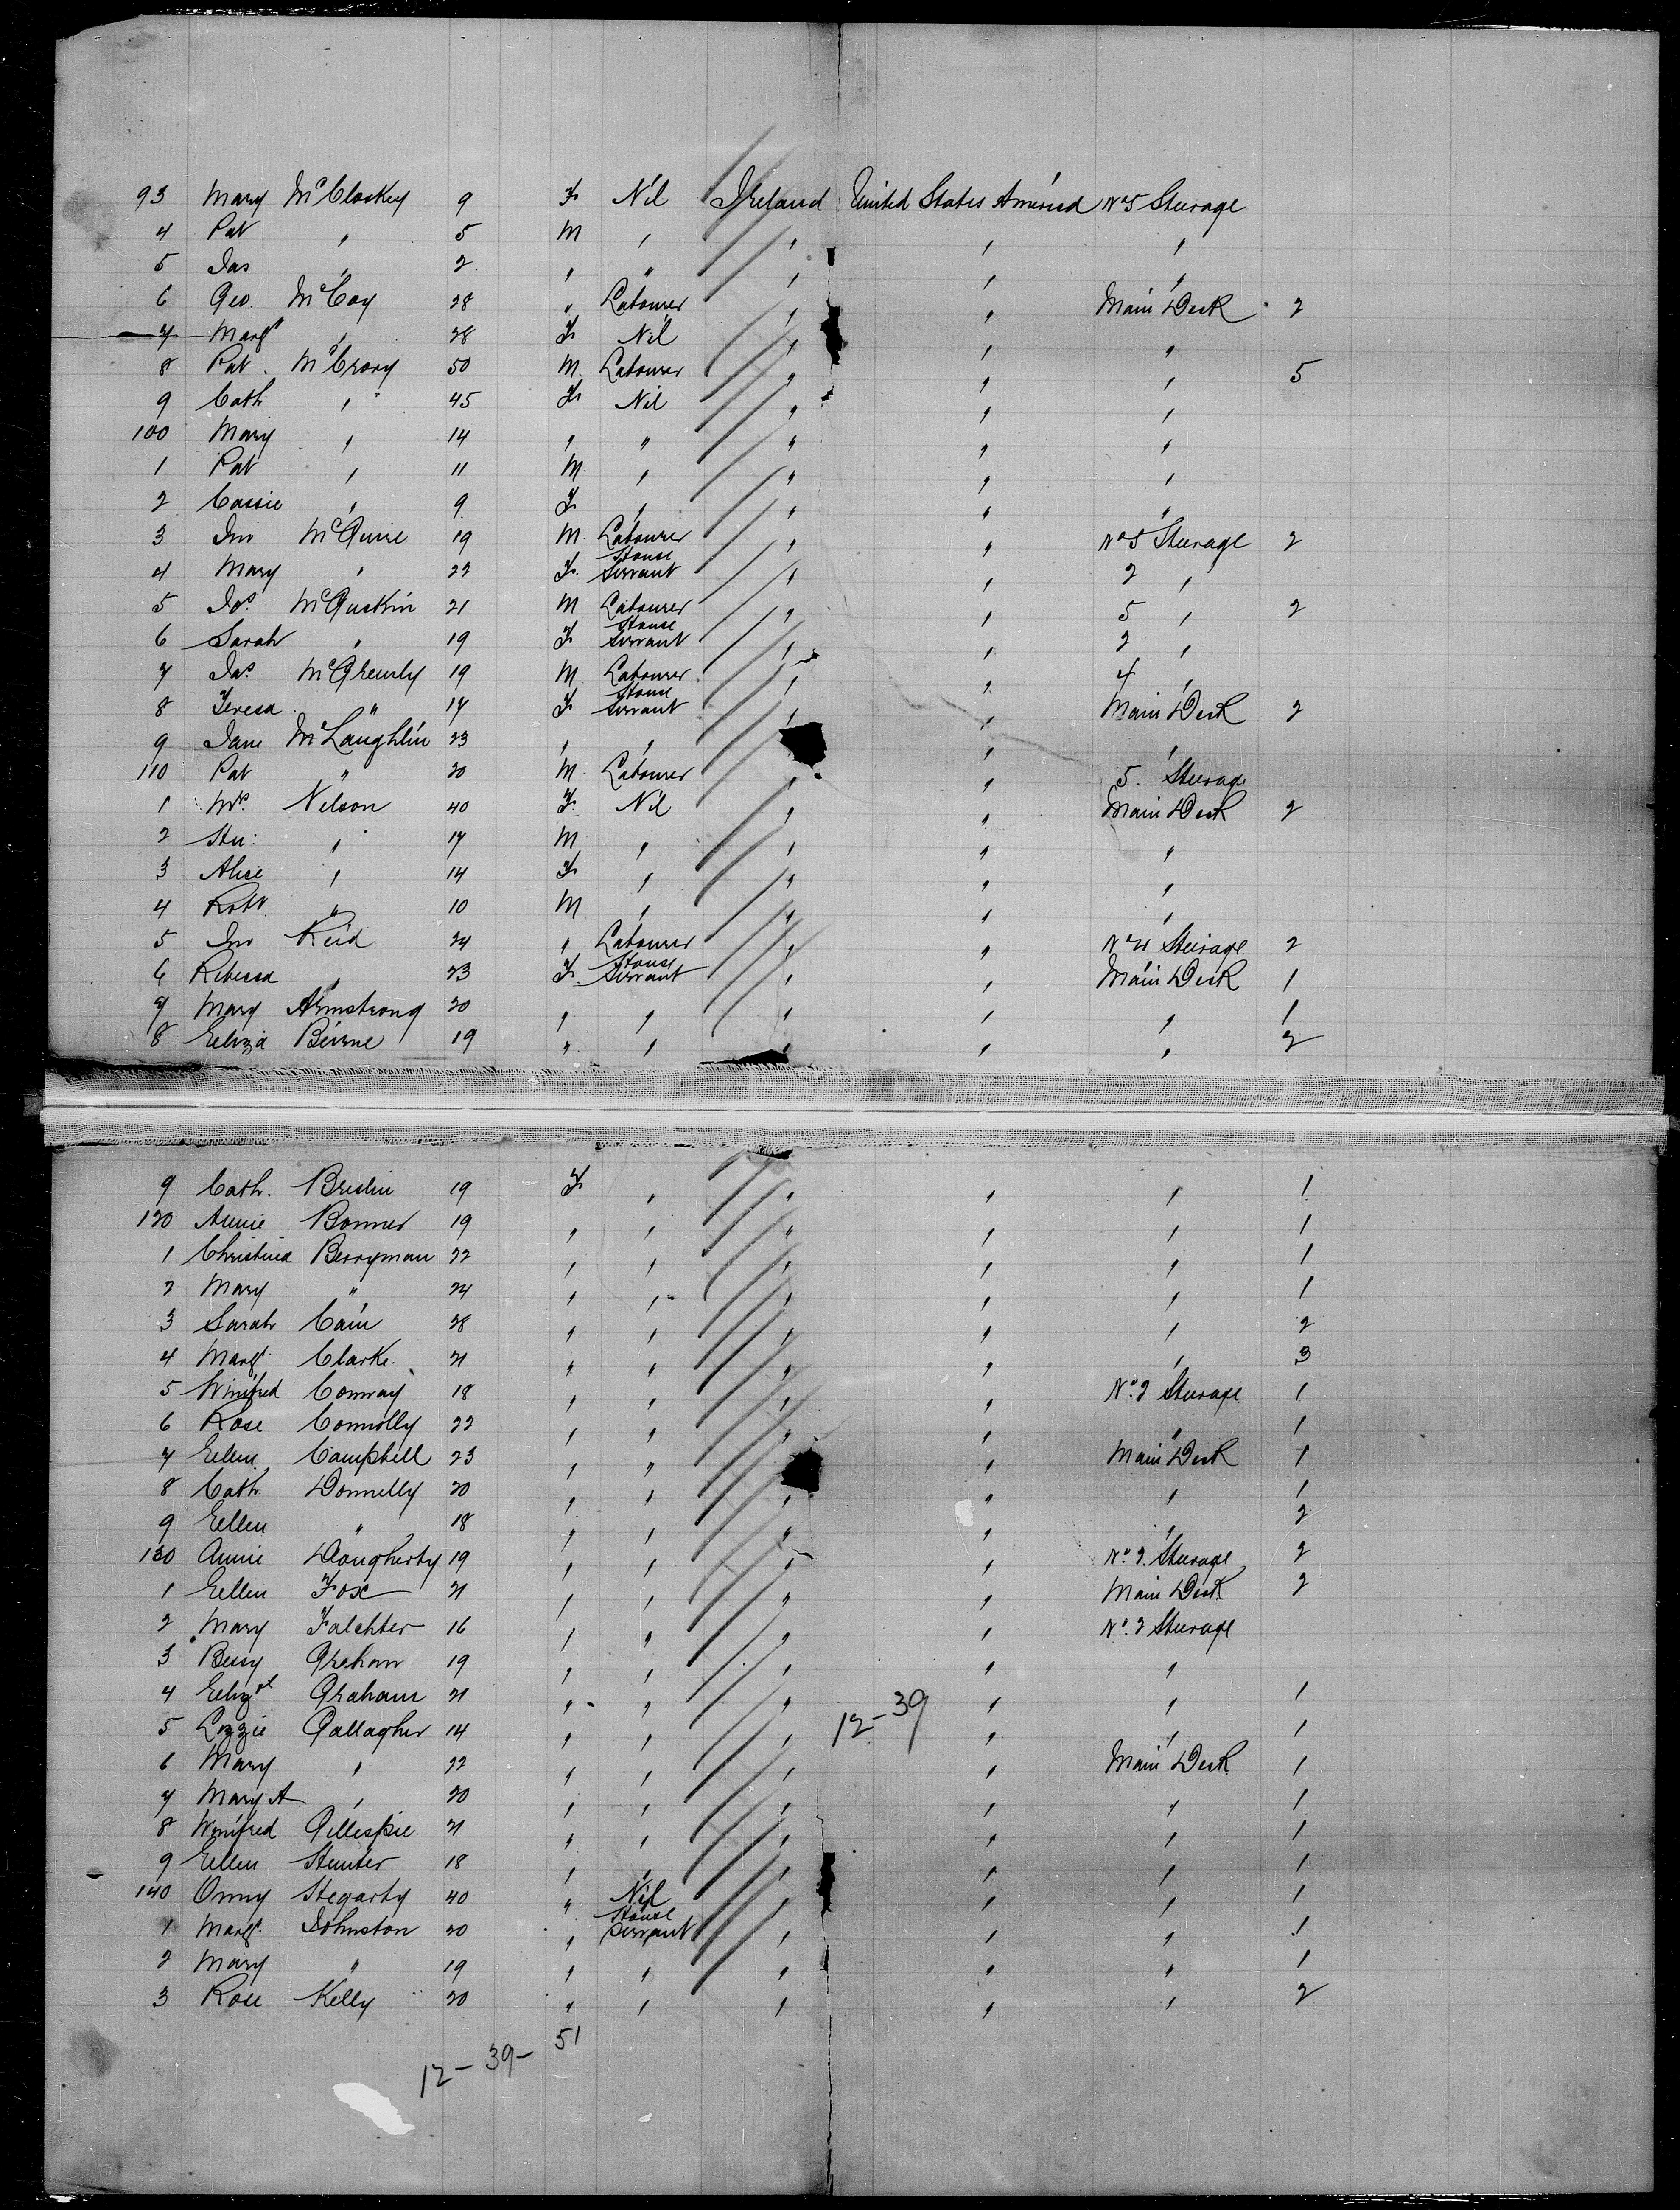 93 Mary McCloskey 9 F Nil Ireland United States America No 5 Steerage
4 Pat " 5 M " " " "
5 Jas " 2 " " " " "
6 Geo. McCoy 28 " Labourer " " Main Deck 2
7 Margt " 28 F Nil " " "
8 Pat McCrory 50 M Labourer " " " 5
9 Cath " 45 F Nil " " "
100 Mary " 14 " " " " "
1 Pat " 11 M " " " "
2 Cassie " 9 F " " " "
3 Jno McGuire 19 M Labourer " " No 5 Steerage 2
4 Mary " 22 F House Servant " " 2 "
5 Jos McGuskin 21 M Labourer " " 5 " 2
6 Sarah " 19 F House Servant " " 2 "
7 Jas McGreurly 19 M Labourer " " 4 "
8 Teresa " 17 F House Servant " " Main Deck 2
9 Jane McLaughlin 23 " " " "
110 Pat " 20 M Labourer " " 5. Steerage
1 Mrs Nelson 40 F Nil " " Main Deck 2
2 Stu: " 17 M " " " "
3 Alice " 14 F " " " "
4 Robt " 10 M " " " "
5 Jno Reid 24 " Labourer " " No 4 Steerage 2
6 Rebecca " 23 F House Servant " " Main Deck 1
7 Mary Armstrong 20 " " " " " 1
8 Eeliza Beirne 19 " " " " " 2
9 Cath. Breslin 19 F " " " " 1
120 Annie Bonner 19 " " " " " 1
1 Christina Berryman 22 " " " " " 1
2 Mary " 24 " " " " " 1
3 Sarah Cain 28 " " " " " 2
4 Margt Clarke 21 " " " " " 3
5 Winifred Conway 18 " " " " No. 2 Steerage 1
6 Rose Connolly 22 " " " " " 1
7 Eellen Campbell 23 " " " Main Deck 1
8 Cath Donnelly 20 " " " " " 1
9 Eellen " 18 " " " " " 2
130 Annie Dougherty 19 " " " " No. 2. Steerage 2
1 Eellen Fox 21 " " " " Main Deck 2
2 Mary Falchter 16 " " " " No. 2 Steerage
3 Bessy Graham 19 " " " " "
4 Eelizt Graham 21 " " " " " 1
12-39
5 Lizzie Gallagher 14 " " " " " 1
6 Mary " 22 " " " " Main Deck 1
7 Mary A " 20 " " " " " 1
8 Winifred Gillespie 21 " " " " " 1
9 Eellen Hunter 18 " " " " " 1
140 Onny Hegarty 40 " Nil " " " 1
1 Margt Johnston 20 " House Servant " " " 1
2 Mary " 19 " " " " " 1
3 Rose Kelly 20 " " " " " 2
12-39-51